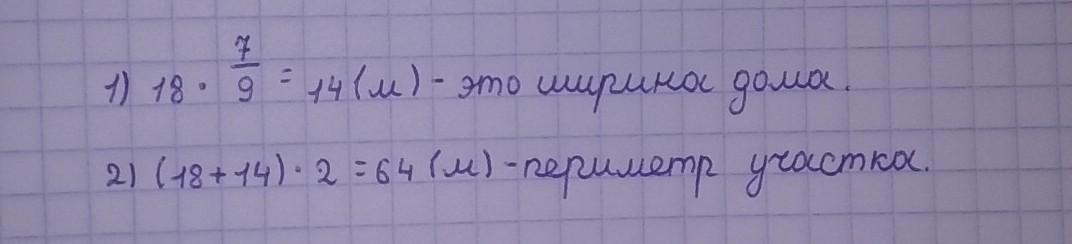 1) 18 · 7/9 = 14 (м) - это ширина дома.
2) (18 + 14) · 2 = 64 (м) - периметр участка.